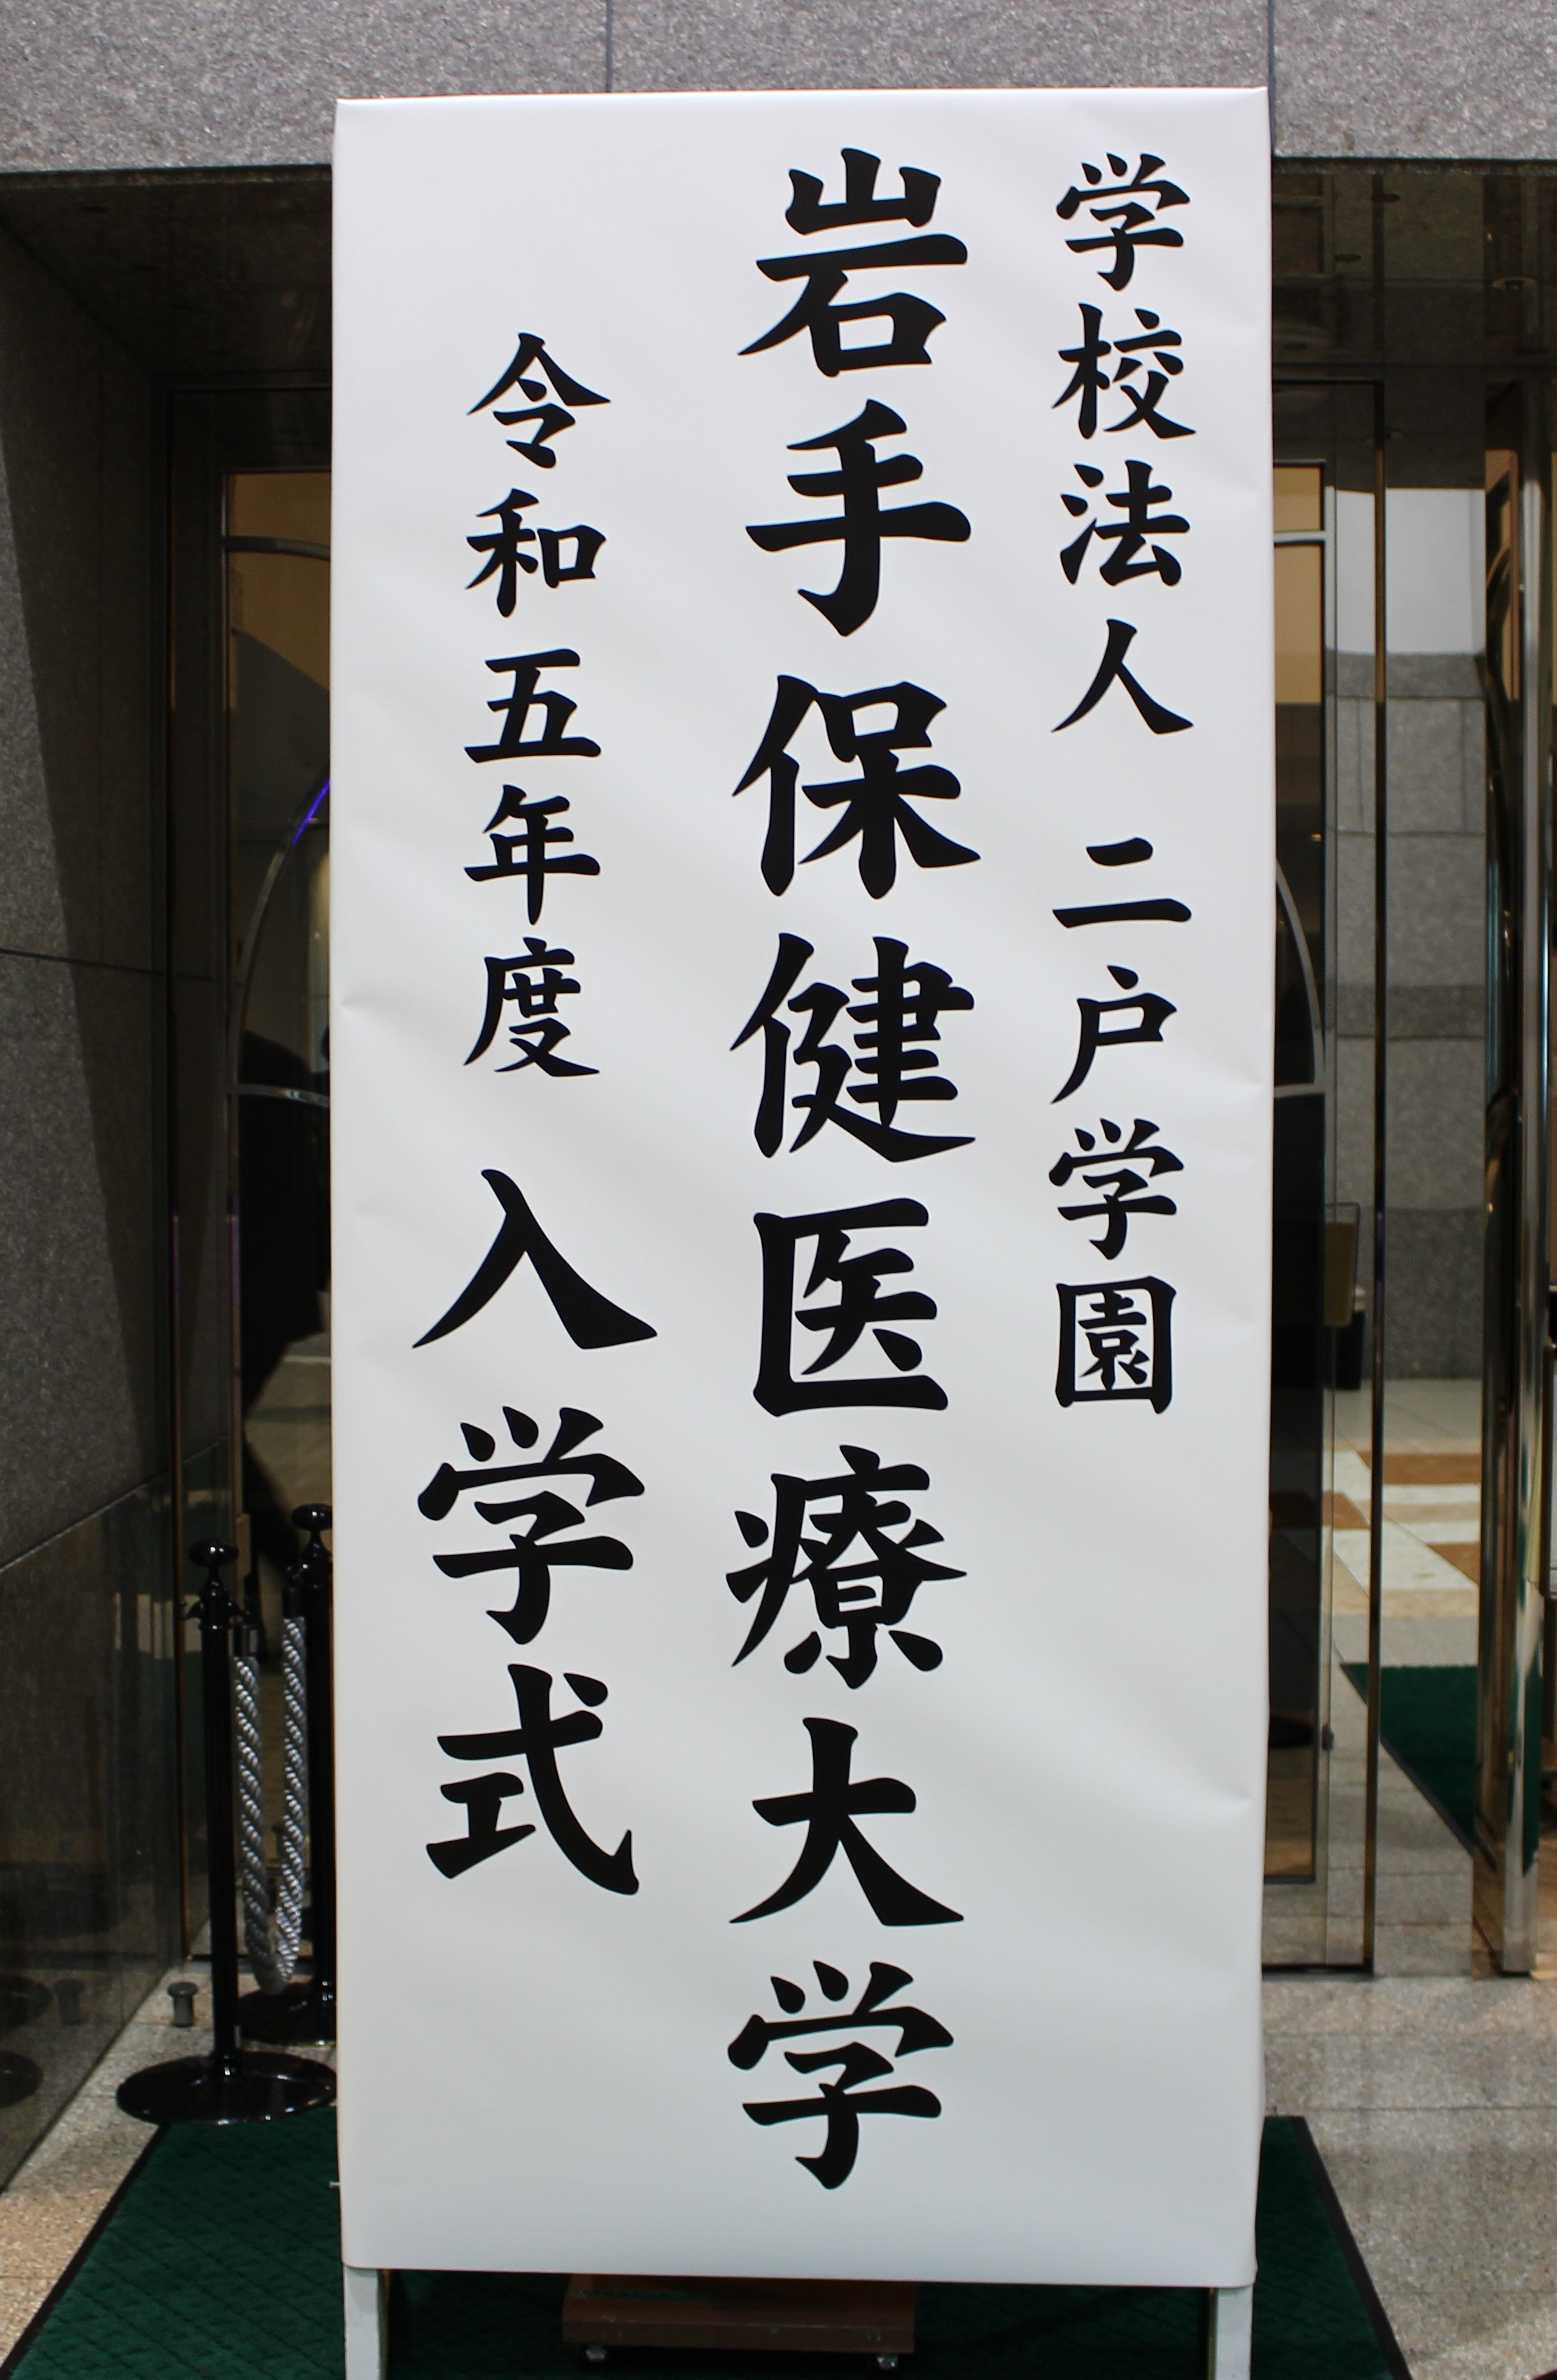 学校法人 二戸学園
岩手保健医療大学
令和五年度 入学式